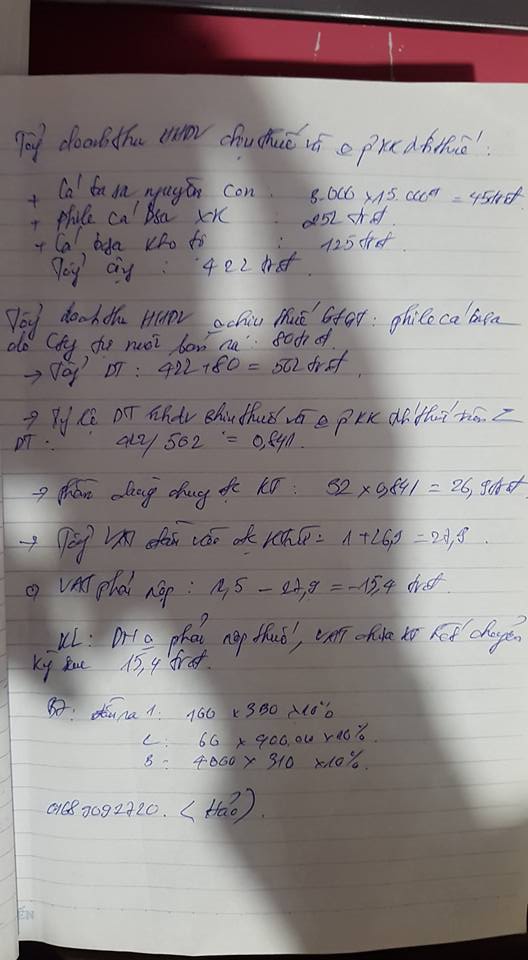 Tổng doanh thu HHDV chịu thuế và o p KK nộ thuế:
+ Cá basa nguyên con: 3.000 x 15.000đ = 45trđ
+ phile cá basa XK : 252 trđ.
+ Cá basa kho tộ : 125 trđ.
Tổng cộng : 422 trđ.
Tổng doanh thu HHDV o chịu thuế GTGT: phile cá basa
do Cty tự nuôi bán ra: 80trđ.
→ Tổng DT: 422 + 80 = 502 trđ.
→ Tỷ lệ DT HHDV chịu thuế và o p KK thuế trên Σ
DT: 422/502 = 0,841.
→ phân dùng chung đc KT: 32 x 0,841 = 26,9trđ
→ Tổng VAT đầu vào đc KTrừ = 1 + 26,9 = 27,9.
VAT phải nộp : 12,5 - 27,9 = -15,4 trđ.
KL: DN o phải nộp thuế, VAT chưa KT hết chuyển
kỳ sau 15,4 trđ.
B7: đầu ra 1: 160 x 330 x 10%
2: 60 x 400.000 x 10%.
3: 4000 x 310 x 10%.
01687092720. (Hảo).